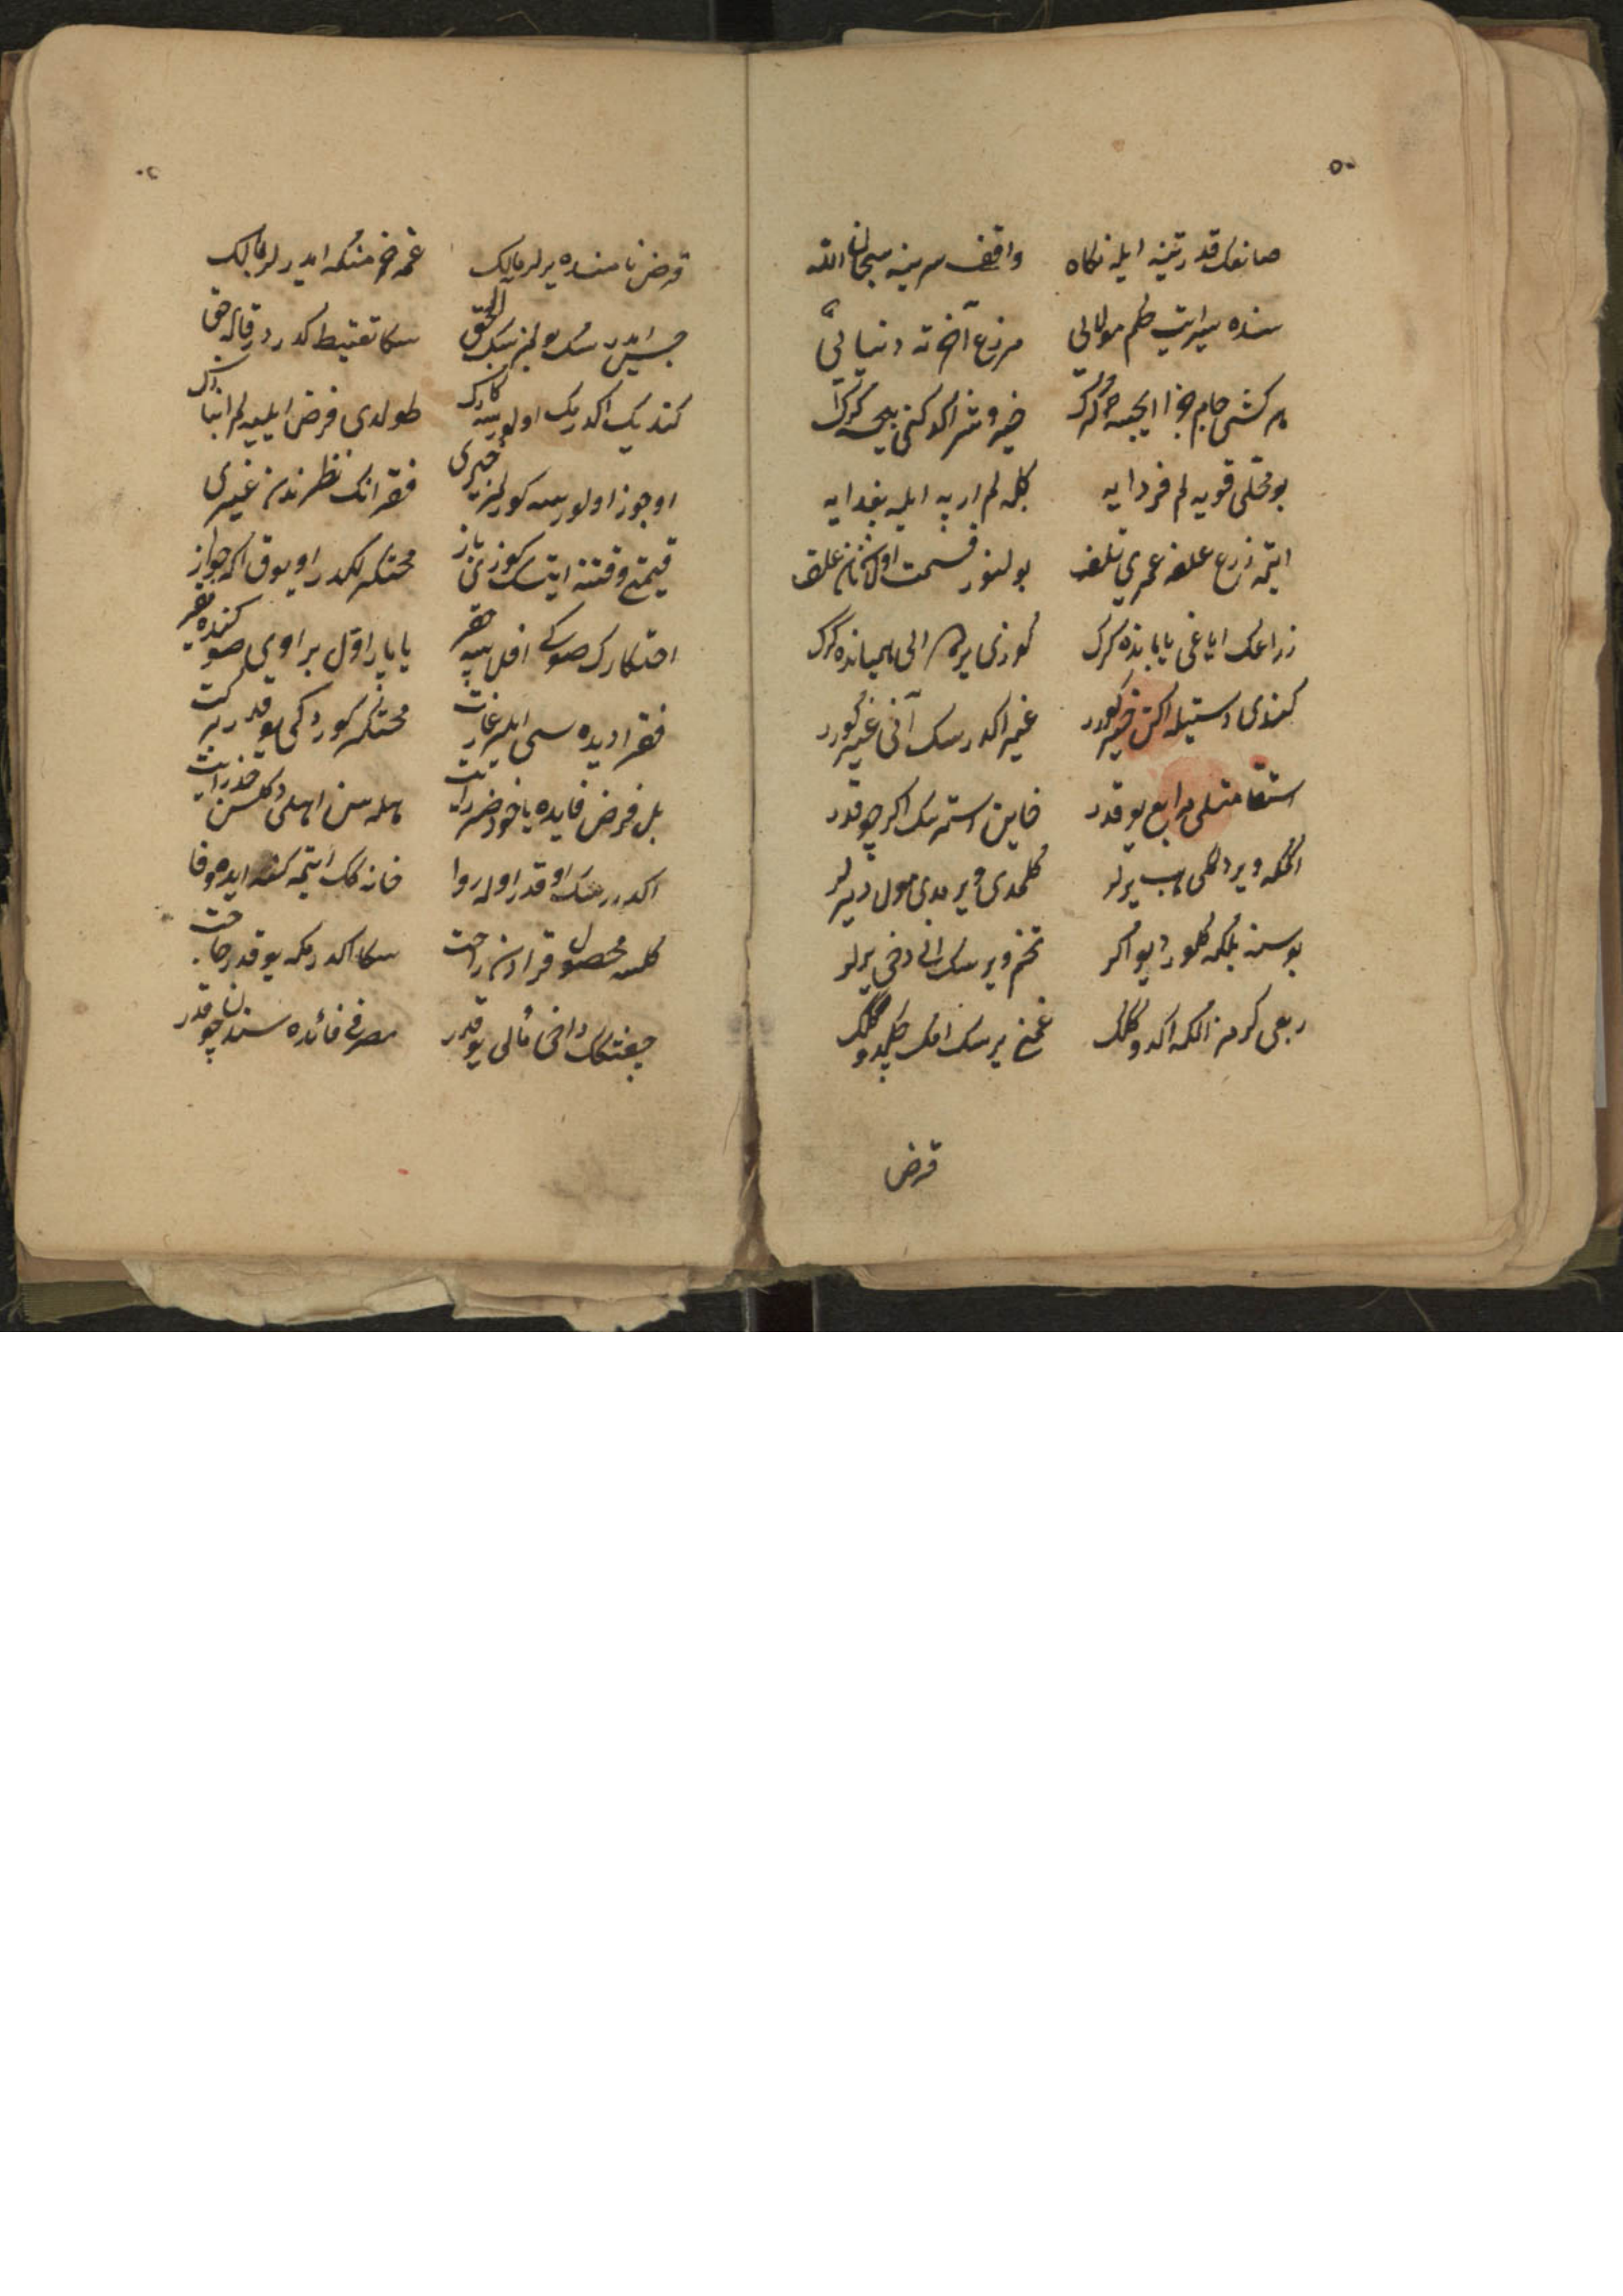 ۵۰
صانعك قدرتینه ایله نكاه واقف سرینه سبحان الله
سنده سیر ایت حكم مولایی مزرع آخرته دنیایی
هر كشی جام جزا ایچسه كرك خیر و شر اكدوكنی بیچسه كرك
بو محلی قویه لم فردایه كله لم ارپه ایله بغدایه
ایتمه زرع علفه عمری تلف بولنور قسمت اولان نان علف
زراعك ایاغی یابانده كرك كوزی یرده الی همیانده كرك
كندی دستیله اكن خیر كورر غیر اكدرسك آنی غیر كورر
استقامتلی مرابع یوقدر خاین استرسك اكر چوقدر
الكه ویردكلی هب یرلر كلمدی ویرمدی مول دیرلر
بو سنه بلكه كلور دیو اكر تخم ویرسك انی دخی یرلر
ربعی كرمز الكه اكدوكك غمنی یرسك امك چكدوكك
قرض
قرض نامنده یرلر مالك غم خرمنكه ایدرلر مالك
سكا تقبیط كدر در قال حق
كندیك اكدیك اولورسه طولدی فرض ایلیه لم انبارك
اوجوز اولورسه كورلمز خیری فقرانك نظرندن غیری
قیمتی وقتنه ایتسك كوزی باز محتكرلكدر او یوق اكه جواز
احتكارك صوكی افلاسه چقر یاپار اول بر اوی صوكنده یقر
فقرا دیده سی ایلر غارت محتكر كوردكی یوقدر بركت
بل فرض فایده یاخود ضرر ایت هله سن اهلی دكلسن حذر ایت
اكدررسك او قدر اوله روا خانه كك ایتمكنه ایده وفا
كلسه محصول قرادن راحت سكا اكدرمكه یوقدر حاجت
چفتلكك داخی مالی یوقدر مصرفی فائده سندن چوقدر